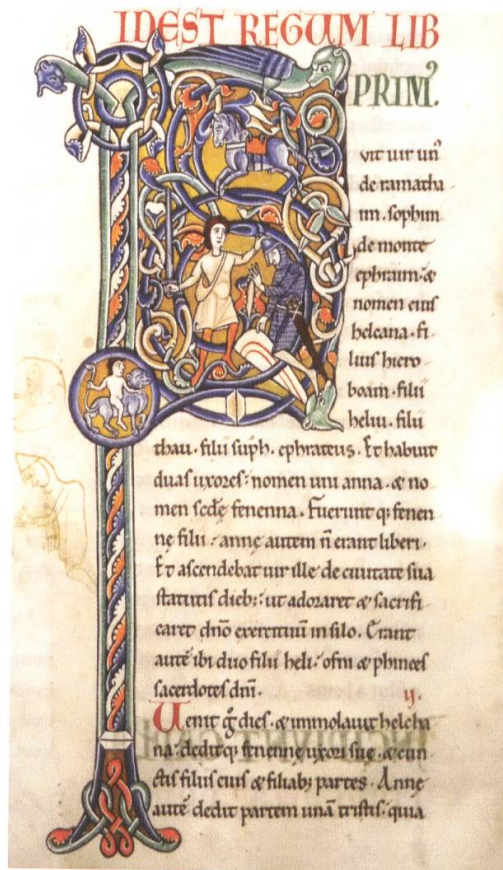 IDEST REGUM LIB
PRIM᾽.
vit uir un᾽
de ramatha
im. sophim
de monte
ephraim. &
nomen eius
helcana. fi
lius hiero
boam. filii
heliu. filii
thau. filii suph. ephrateus. Et habuit
duas uxores: nomen uni anna. & no
men scdę fenenna. Fuerunt q; fenen
nę filii: annę autem n̄ erant liberi.
Et ascendebat uir ille de ciuitate sua
statutis dieb;. ut adoraret & sacrifi
caret dn̄o exercituum in silo. Erant
autē ibi duo filii heli. ofni & phinees
sacerdotes dn̄i. ij.
Uenit g̊ dies. & immolauit helcha
na. dedit q; fenennę uxori suę. & cun
ctis filiis eius & filiab; partes. Annę
autē dedit partem unā tristis. quia